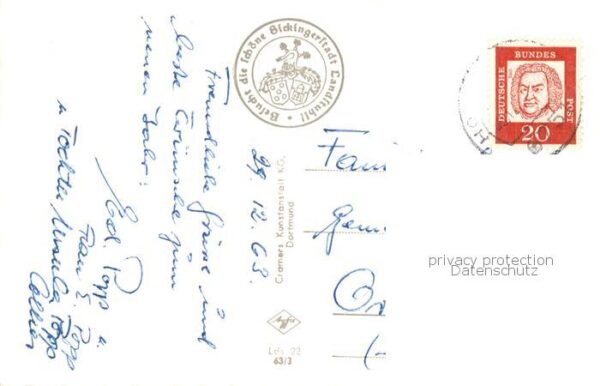 Freundliche Grüsse und
beste Wünsche zum
neuen Jahr:
Ed. Popp u.
Frau E. Popp
u. Tochter Ursula Popp
29.12.63.
Besucht die schöne Sickingerstadt Landstuhl!
Cramers Kunstanstalt KG,
Dortmund
Lds 22
63/3
Fam
DEUTSCHE
BUNDES
POST
20
privacy protection
Datenschutz